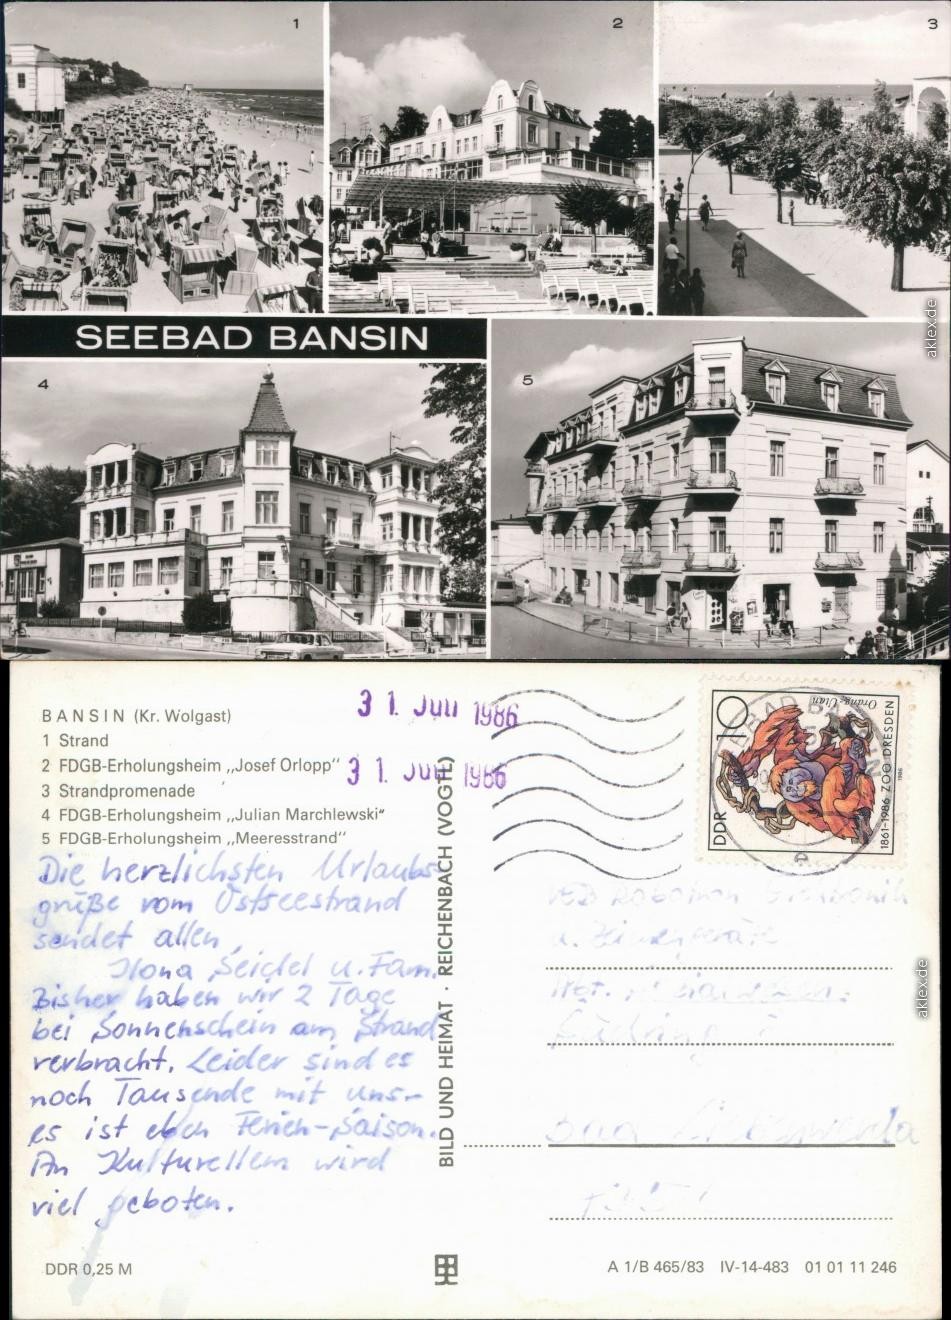 1
2
3
SEEBAD BANSIN
4
5
aklex.de
BANSIN (Kr. Wolgast)
1 Strand
2 FDGB-Erholungsheim „Josef Orlopp"
3 Strandpromenade
4 FDGB-Erholungsheim „Julian Marchlewski"
5 FDGB-Erholungsheim „Meeresstrand"
31. Juli 1986
31. Juli 1986
10
DDR
Orang-Utan
1861-1986 ZOO DRESDEN
1986
Die herzlichsten Urlaubs-
grüße vom Ostseestrand
sendet allen
Ilona Seidel u. Fam.
Bisher haben wir 2 Tage
bei Sonnenschein am Strand
verbracht. Leider sind es
noch Tausende mit uns-
es ist eben Ferien-Saison.
An Kulturellem wird
viel geboten.
BILD UND HEIMAT · REICHENBACH (VOGTL)
VEB Robotron Elektronik
Bad Liebenwerda
aklex.de
DDR 0,25 M
A 1/B 465/83 IV-14-483 01 01 11 246